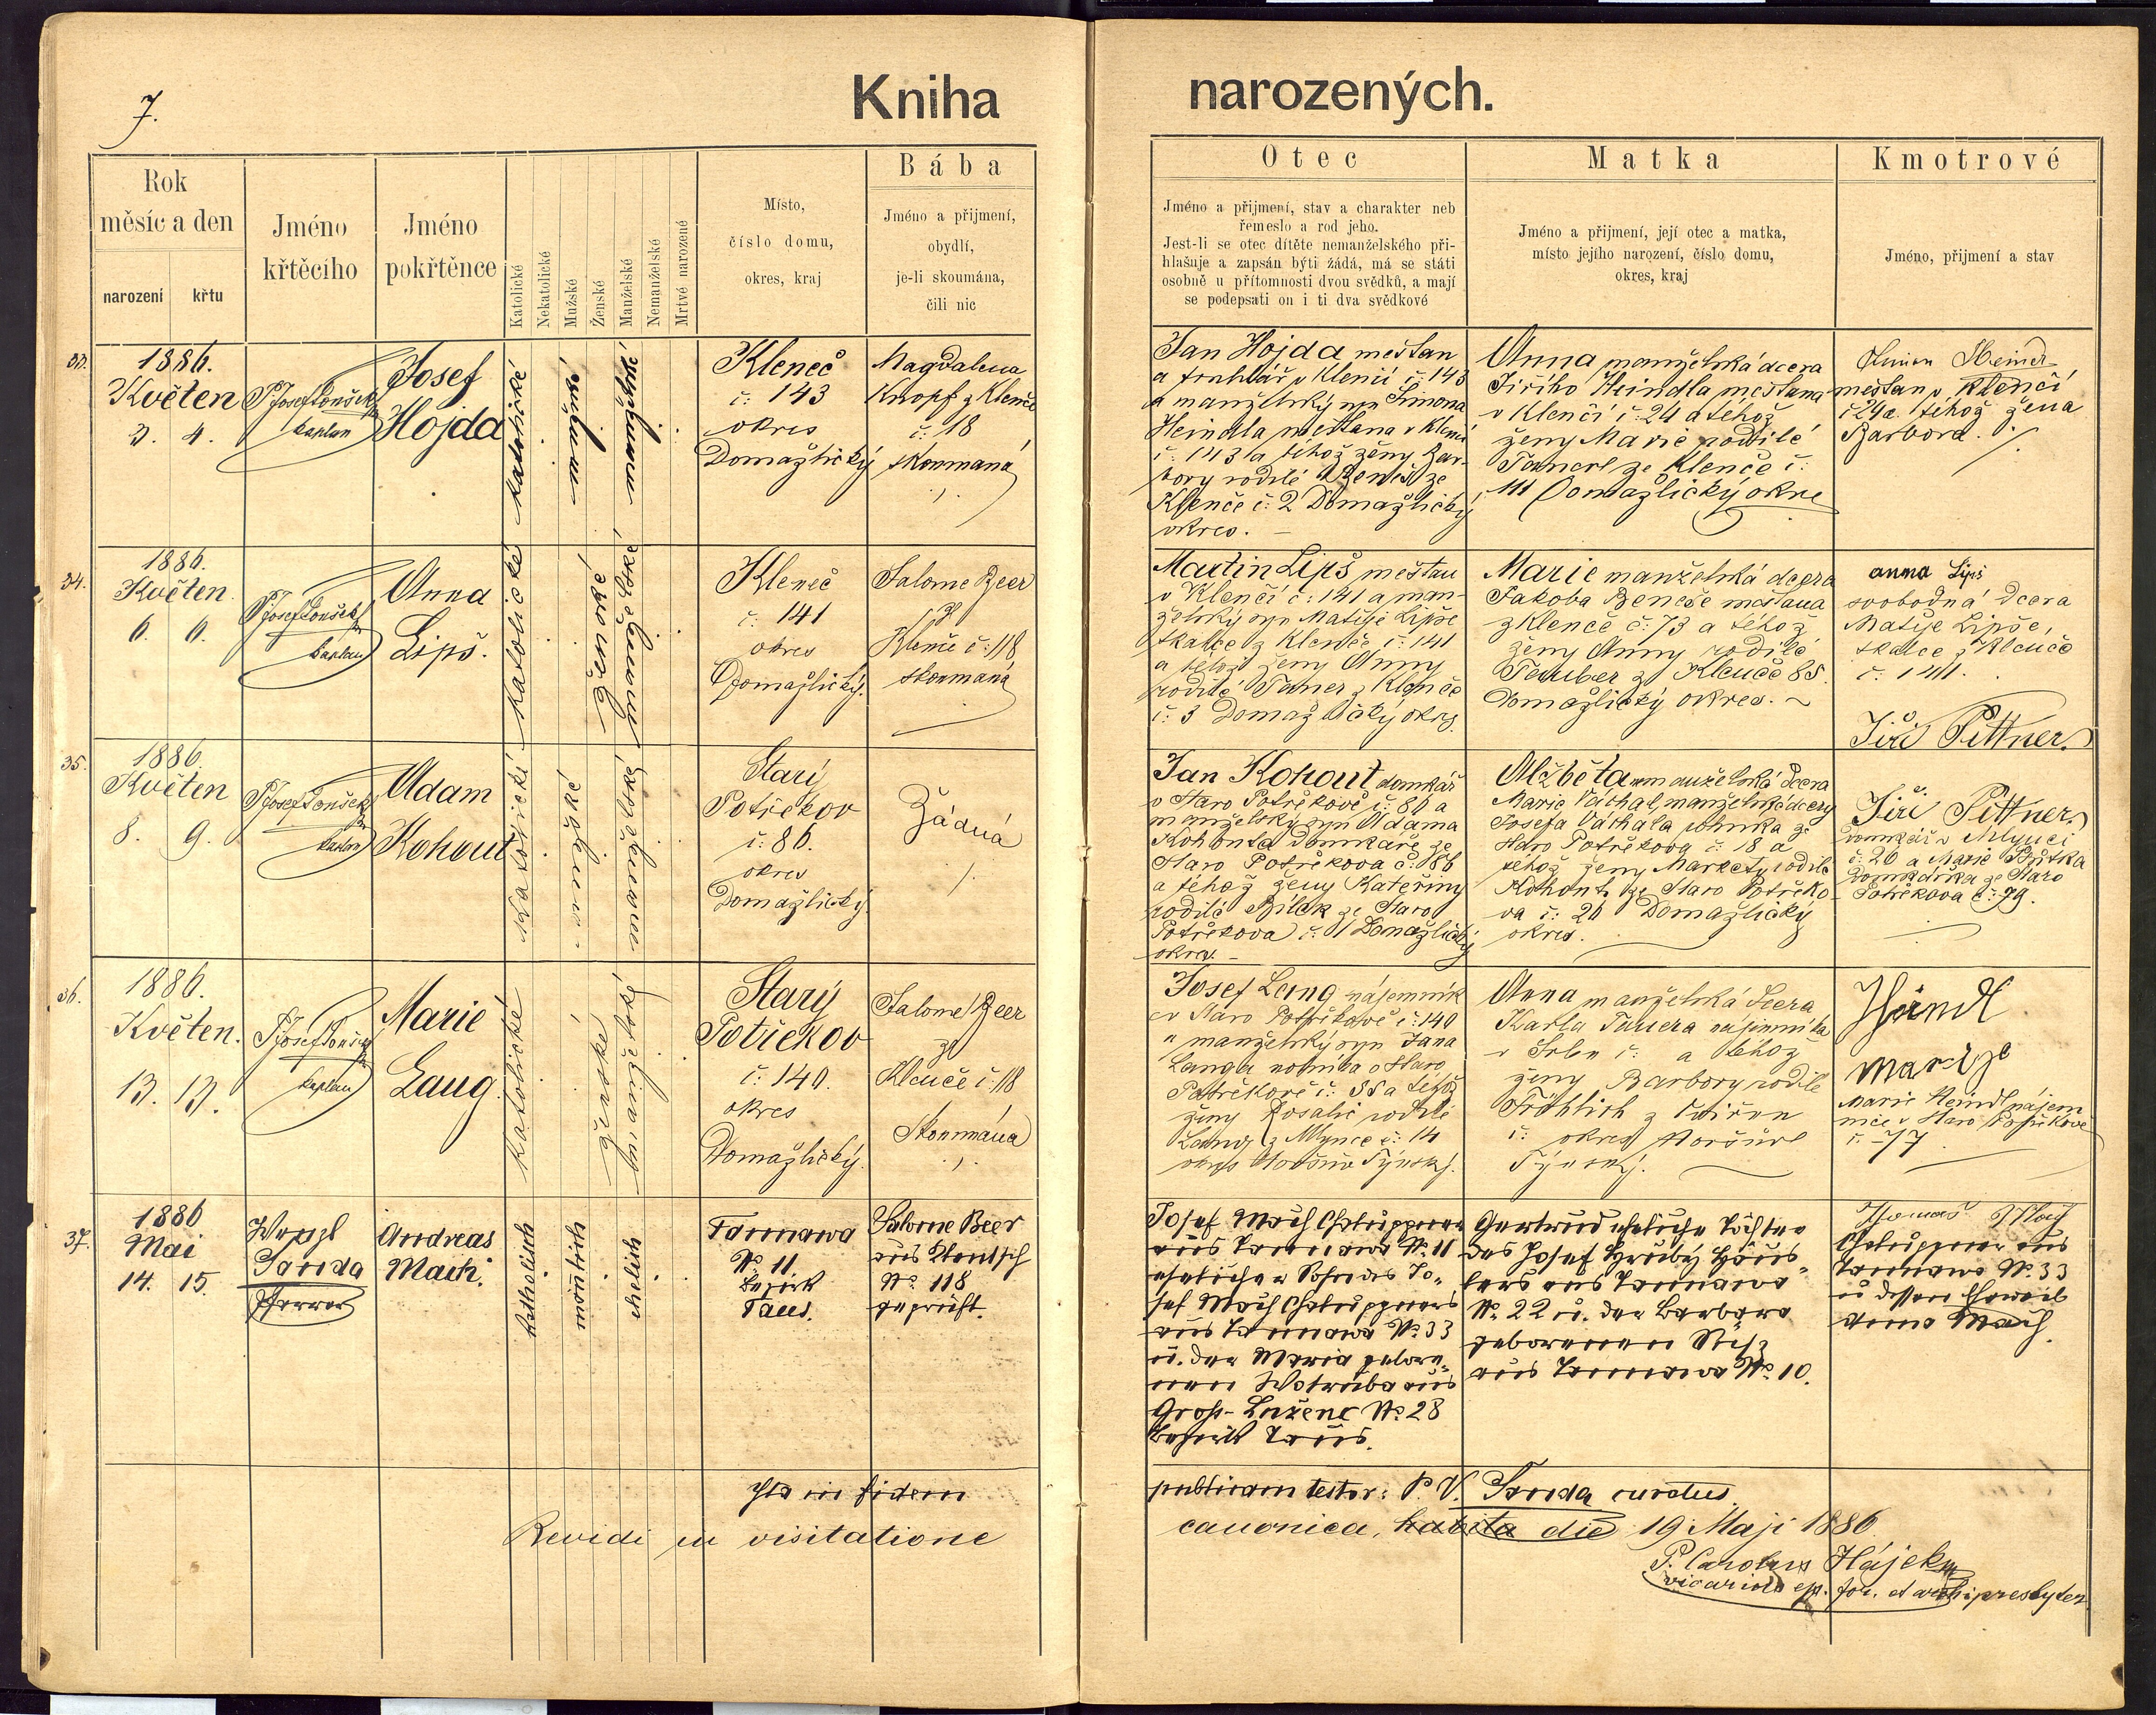 7.
Kniha narozených.
Rok
měsíc a den
narození
křtu
Jméno
křtěcího
Jméno
pokřtěnce
Katolické
Nekatolické
Mužské
Ženské
Manželské
Nemanželské
Mrtvě narozené
Místo,
číslo domu,
okres, kraj
Bába
Jméno a přijmení,
obydlí,
je-li skoumána,
čili nic
Otec
Jméno a přijmení, stav a charakter neb
řemeslo a rod jeho.
Jest-li se otec dítěte nemanželského při-
hlašuje a zapsán býti žádá, má se státi
osobně u přítomnosti dvou svědků, a mají
se podepsati on i ti dva svědkové
Matka
Jméno a přijmení, její otec a matka,
místo jejího narození, číslo domu,
okres, kraj
Kmotrové
Jméno, přijmení a stav
33.
1886.
Květen
3. 4.
P. Josef
kaplan
Josef
Hojda
katolické
mužské
manželské
Kleneč
č: 143
okres
Domažlický
Magdalena
Knopf z Klenče
č: 18
skoumaná
Jan Hojda mešťan
a truhlář v Klenčí č: 143
a manželský syn Šimona
Heindla mešťana v Klenčí
č: 143 a téhož ženy Bar-
bory rodilé Beneš ze
Klenče č: 2 Domažlický
okres.
Anna manželská dcera
Jiřího Heindla mešťana
v Klenčí č: 24 a téhož
ženy Marie rodilé
ze Klenče č:
111 Domažlický okres
mešťan v Klenčí
č 24 a téhož žena
Barbora.
34.
1886.
Květen
6. 6.
P. Josef
kaplan
Anna
Lipš.
katolické
ženské
manželské
Kleneč
č: 141
okres
Domažlický.
Salome Beer
z
Klenče č: 118
skoumaná
Martin Lipš mešťan
v Klenčí č: 141 a man-
želský syn Matěje Lipše
tkalce z Klenče č: 141
a téhož ženy Anny
rodilé Taner z Klenče
č: 3 Domažlický okres.
Marie manželská dcera
Jakoba Beneše mešťana
z Klenče č: 73 a téhož
ženy Anny rodilé
Tauber z Klenče 85.
Domažlický okres.
anna Lipš
svobodná dcera
Matěje Lipše,
tkalce z Klenče
č: 141.
Jiří Pittner
35.
1886.
Květen
8. 9.
P. Josef
kaplan
Adam
Kohout
Katolické
mužské
manželské
Starý
Potřekov
č: 86.
okres
Domažlický.
Žádná
Jan Kohout domkář
v Staro Potřekově č: 86 a
manželský syn Adama
Kohouta domkáře ze
Staro Potřekova č: 86
a téhož ženy Kateřiny
rodilé Bílek ze Staro
Potřekova č: 11 Domažlický
okres.
Alžběta manželská dcera
Marie Váchal, manželské dcery
Josefa Váchala rolníka ze
Staro Potřekova č: 18 a
téhož ženy Markety rodilé
Kohout ze Staro Potřeko-
va č: 26 Domažlický
okres.
Jiří Pittner
domkář v Mlynci
č: 20 a Marie
domkářka ze Staro
Potřekova č: 79.
36.
1886.
Květen.
13. 13.
P. Josef
kaplan
Marie
Lang.
katolické
ženské
manželské
Starý
Potřekov
č: 140.
okres
Domažlický.
Salome Beer
ze
Klenče č: 118
Skoumána
Josef Lang nájemník
v Staro Potřekově č: 140
a manželský syn Jana
Langa rolníka v Staro
Potřekově č: 55 a téhož
ženy Rosalie rodilé
Lang z Mlynce č: 14
okres Horšův Týnský.
Anna manželská dcera
Karla Tauera nájemníka
v Srbu č: a téhož
ženy Barbory rodilé
Fröhlich z
č: okres Horšův
Týnský.
Händl
Marie Heindl nájem
nice v Staro Potřekově
č: 77
37.
1886
Mai
14. 15.
Wenzl
Pfarrer
Andreas
Mach.
katholisch
mänlich
ehelich
Tannawa
No 11.
Bezirk
Taus.
Salome Beer
aus Klentsch
No 118
geprüft.
Josef Mach Chalupner
aus Tannawa No 11
ehelicher Sohn des Jo-
sef Mach Chalupners
aus Tannawa No 33
u. der Maria gebore-
nen Wotruba aus
Groß-Luženc No 28
Bezirk Taus.
Gertrud eheliche Tochter
des Josef Hrubý Häus-
lers aus Tannawa
No 22 u. der Barbara
geborenen
aus Tannawa No 10.
Thomas Mach
Chalupner aus
Tannawa No. 33
u dessen Eheweib
Anna Mach.
Ita in fidem publicam testor: P. V. curatus
Revidi in visitatione canonica, habita die 19 Maji 1886
P. Carolus Hájek
vicarius ep. for. et archipresbyter